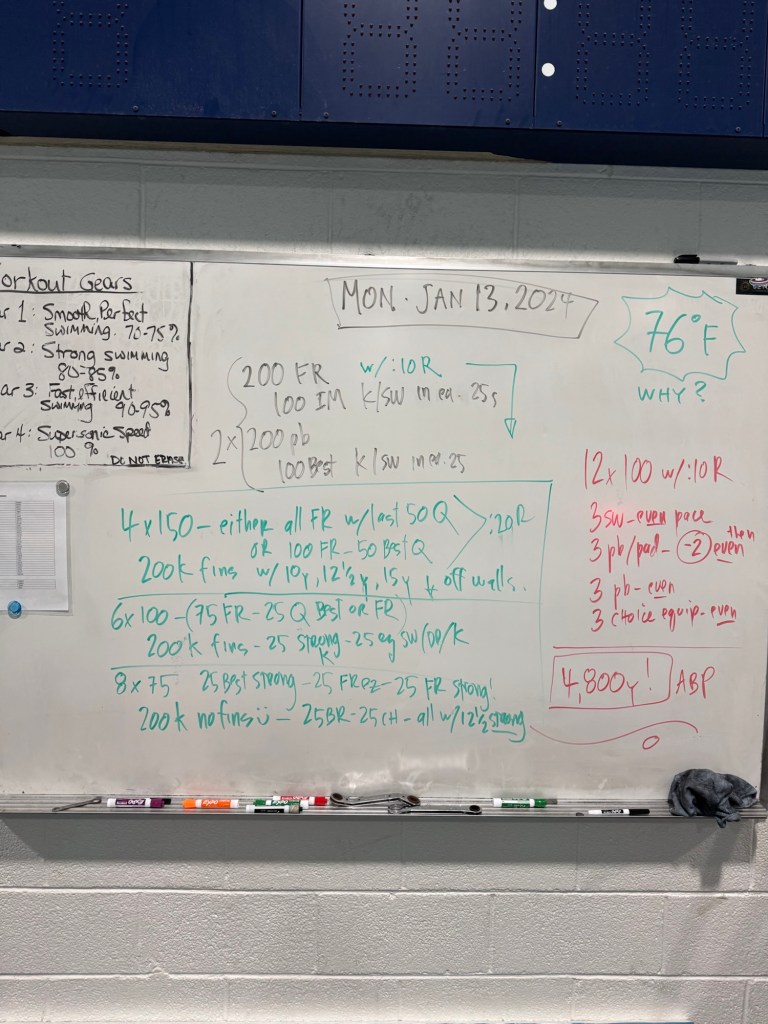 orkout Gears
ar 1: Smooth, Perfect
swimming. 70-75%
ar 2: Strong swimming
80-85%
ar 3: Fast, efficient
swimming 90-95%
ar 4: Supersonic Speed
100 %
DO NOT ERASE
MON. JAN 13, 2024
76°F
WHY?
200 FR w/:10R
100 IM K/SW in ea. 25s
2x
200 pb
100 Best K/SW in ea. 25
4x150 - either all FR w/last 50 Q
OR 100 FR - 50 Best Q
:20R
200 k fins w/ 10y, 12½y, 15y k off walls.
6x100 - (75 FR - 25 Q Best or FR)
200 k fins - 25 strong k - 25 ez SW/DP/K
8x75: 25 Best strong - 25 FR ez - 25 FR strong!
200 k no fins - 25BR - 25CH - all w/12½ strong
12x100 w/:10R
3 sw - even pace
3 pb/pad - -2 then even
3 pb - even
3 choice equip - even
4,800y! ABP
EXPO
EXPO
EXPO